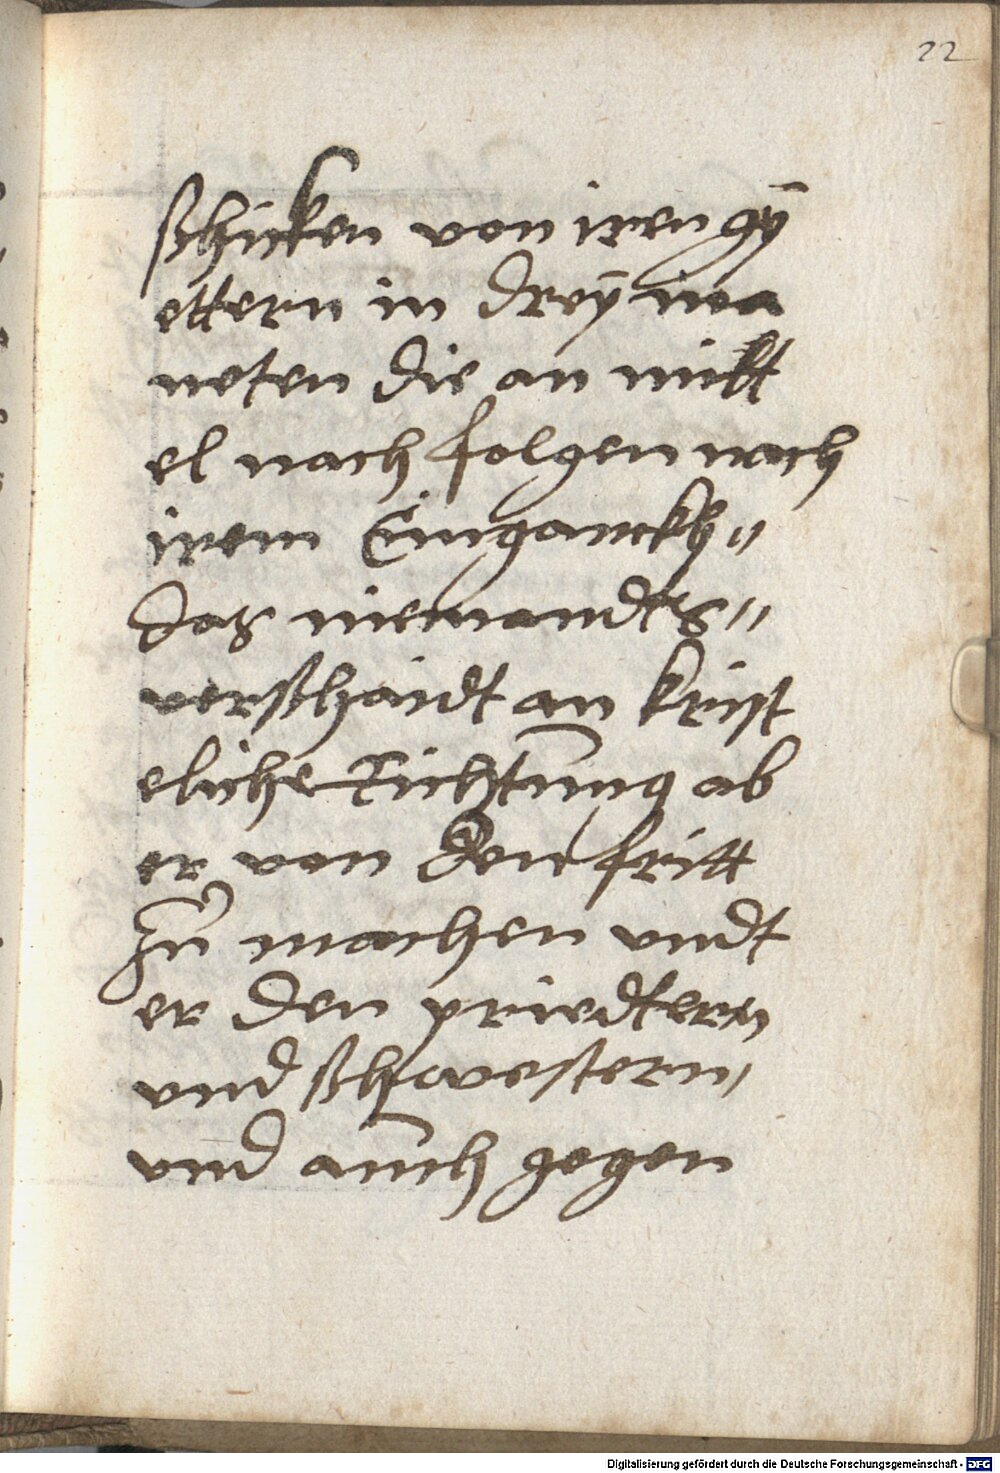 22
schicken von iren gÿ
ettern in dreÿ mo
neten die an mitt
el nach folgen nach
irem Eingannckh
daz niemandtz
verschaidt an krist
eliche Richtung ab
er von
zu machen vndt
er den pruedtern
vnd schwestern
vnd auch gegen
Digitalisierung gefördert durch die Deutsche Forschungsgemeinschaft - DFG